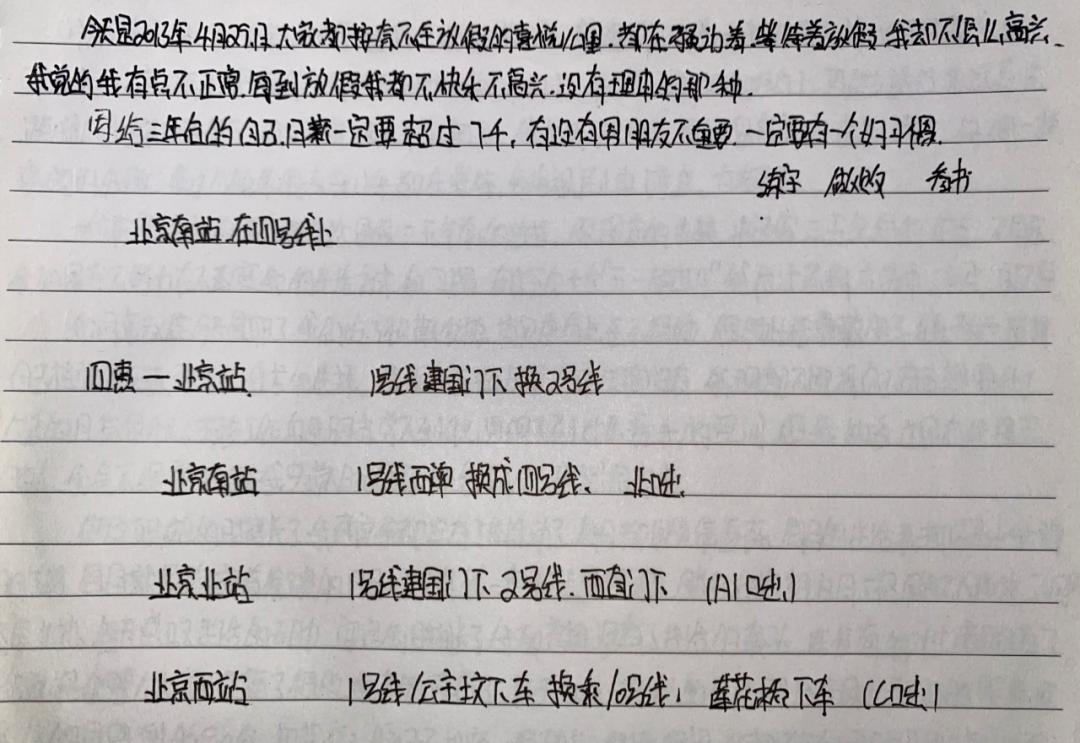 今天是2013年4月29日.大家都抱有不住放假的喜悦心里.都在骚动着.坐等着放假 我却不怎么高兴.
我觉的我有点不正常.每到放假我都不快乐不高兴.没有理由的那种.
写给三年后的自己.月薪一定要超过7千,有没有男朋友不重要.一定要有一个好习惯.
练字 做饭 看书
北京南站.在四号线上
四惠 — 北京站. 1号线建国门下换2号线
北京南站 1号线西单 换成四号线. 北口出.
北京北站 1号线建国门下.2号线.西直门下 (A1口出)
北京西站 1号线公主坟下车 换乘10号线, 莲花桥下车 (C口出)